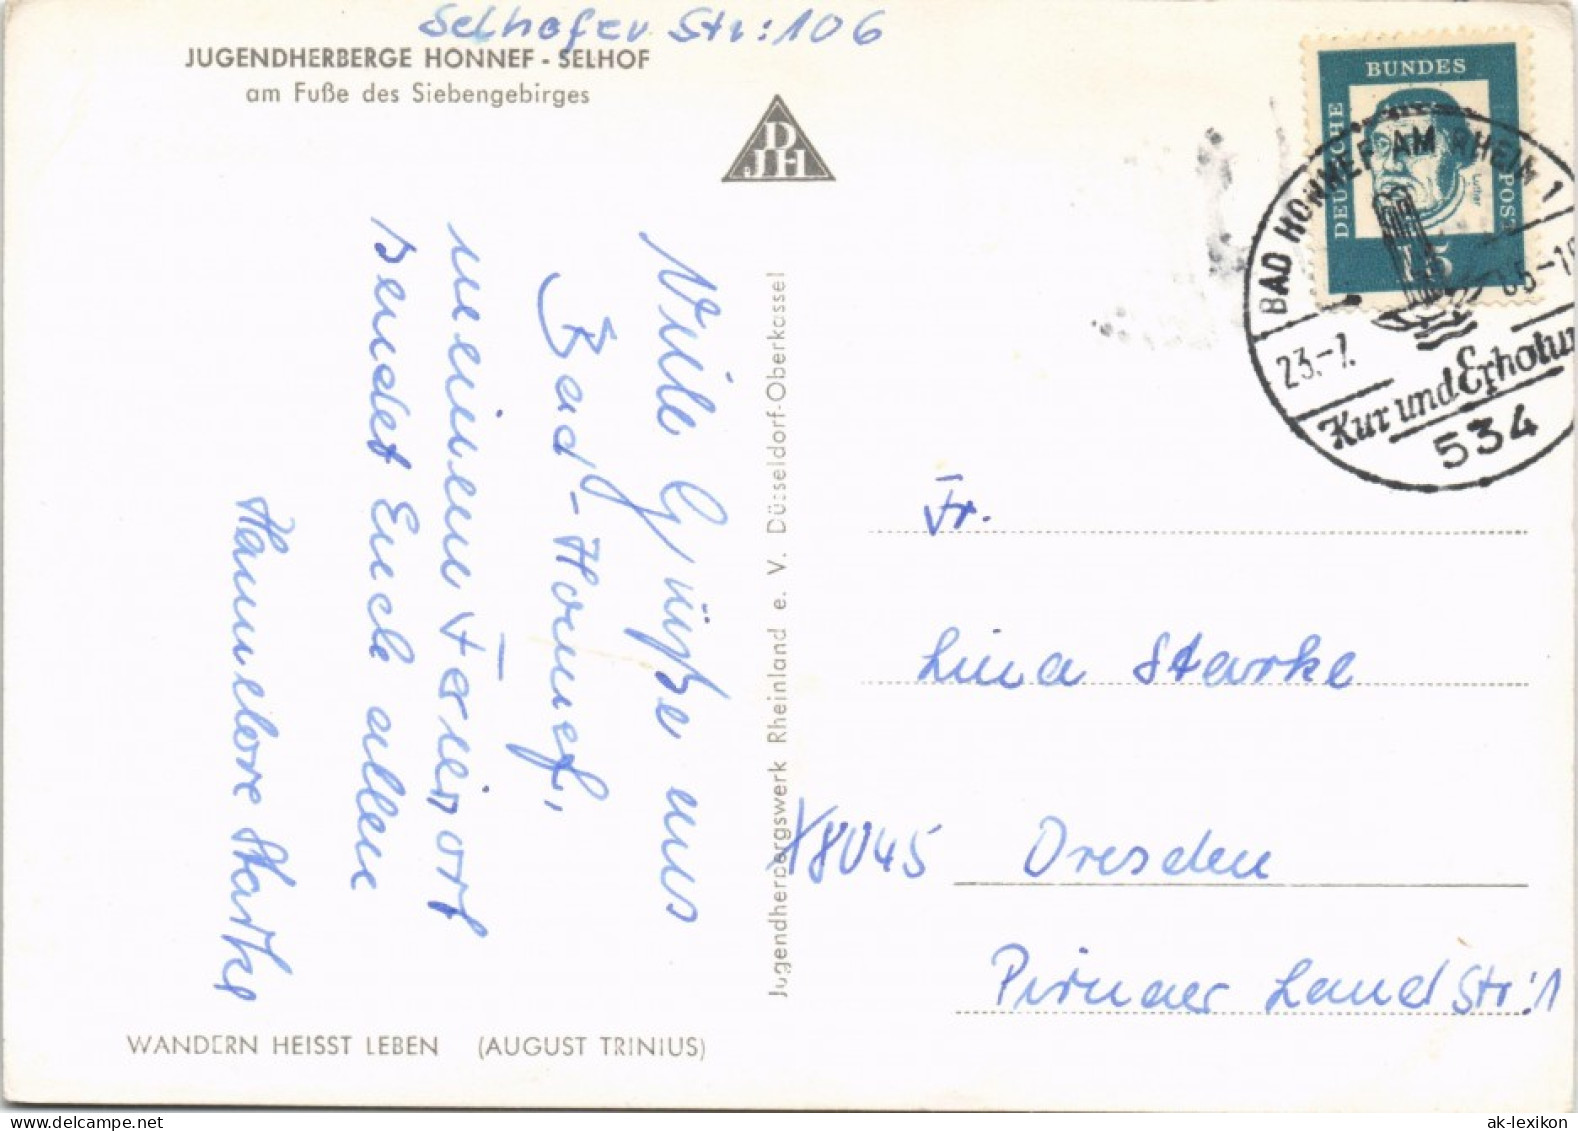 Selhofer Str: 106
JUGENDHERBERGE HONNEF - SELHOF
am Fuße des Siebengebirges
DJH
Viele Grüße aus
Bad-Honnef,
meinem Ferienort
sendet Euch allen
Hannelore Starke
WANDERN HEISST LEBEN (AUGUST TRINIUS)
Jugendherbergswerk Rheinland e. V. Düsseldorf-Oberkassel
DEUTSCHE
BUNDES
POST
Luther
15
BAD HONNEF AM RHEIN 1
23.-7. 65-18
Kur und Erholun
534
Fr.
Lina Starke
X8045 Dresden
Pirnaer Landstr: 1
ak-lexikon